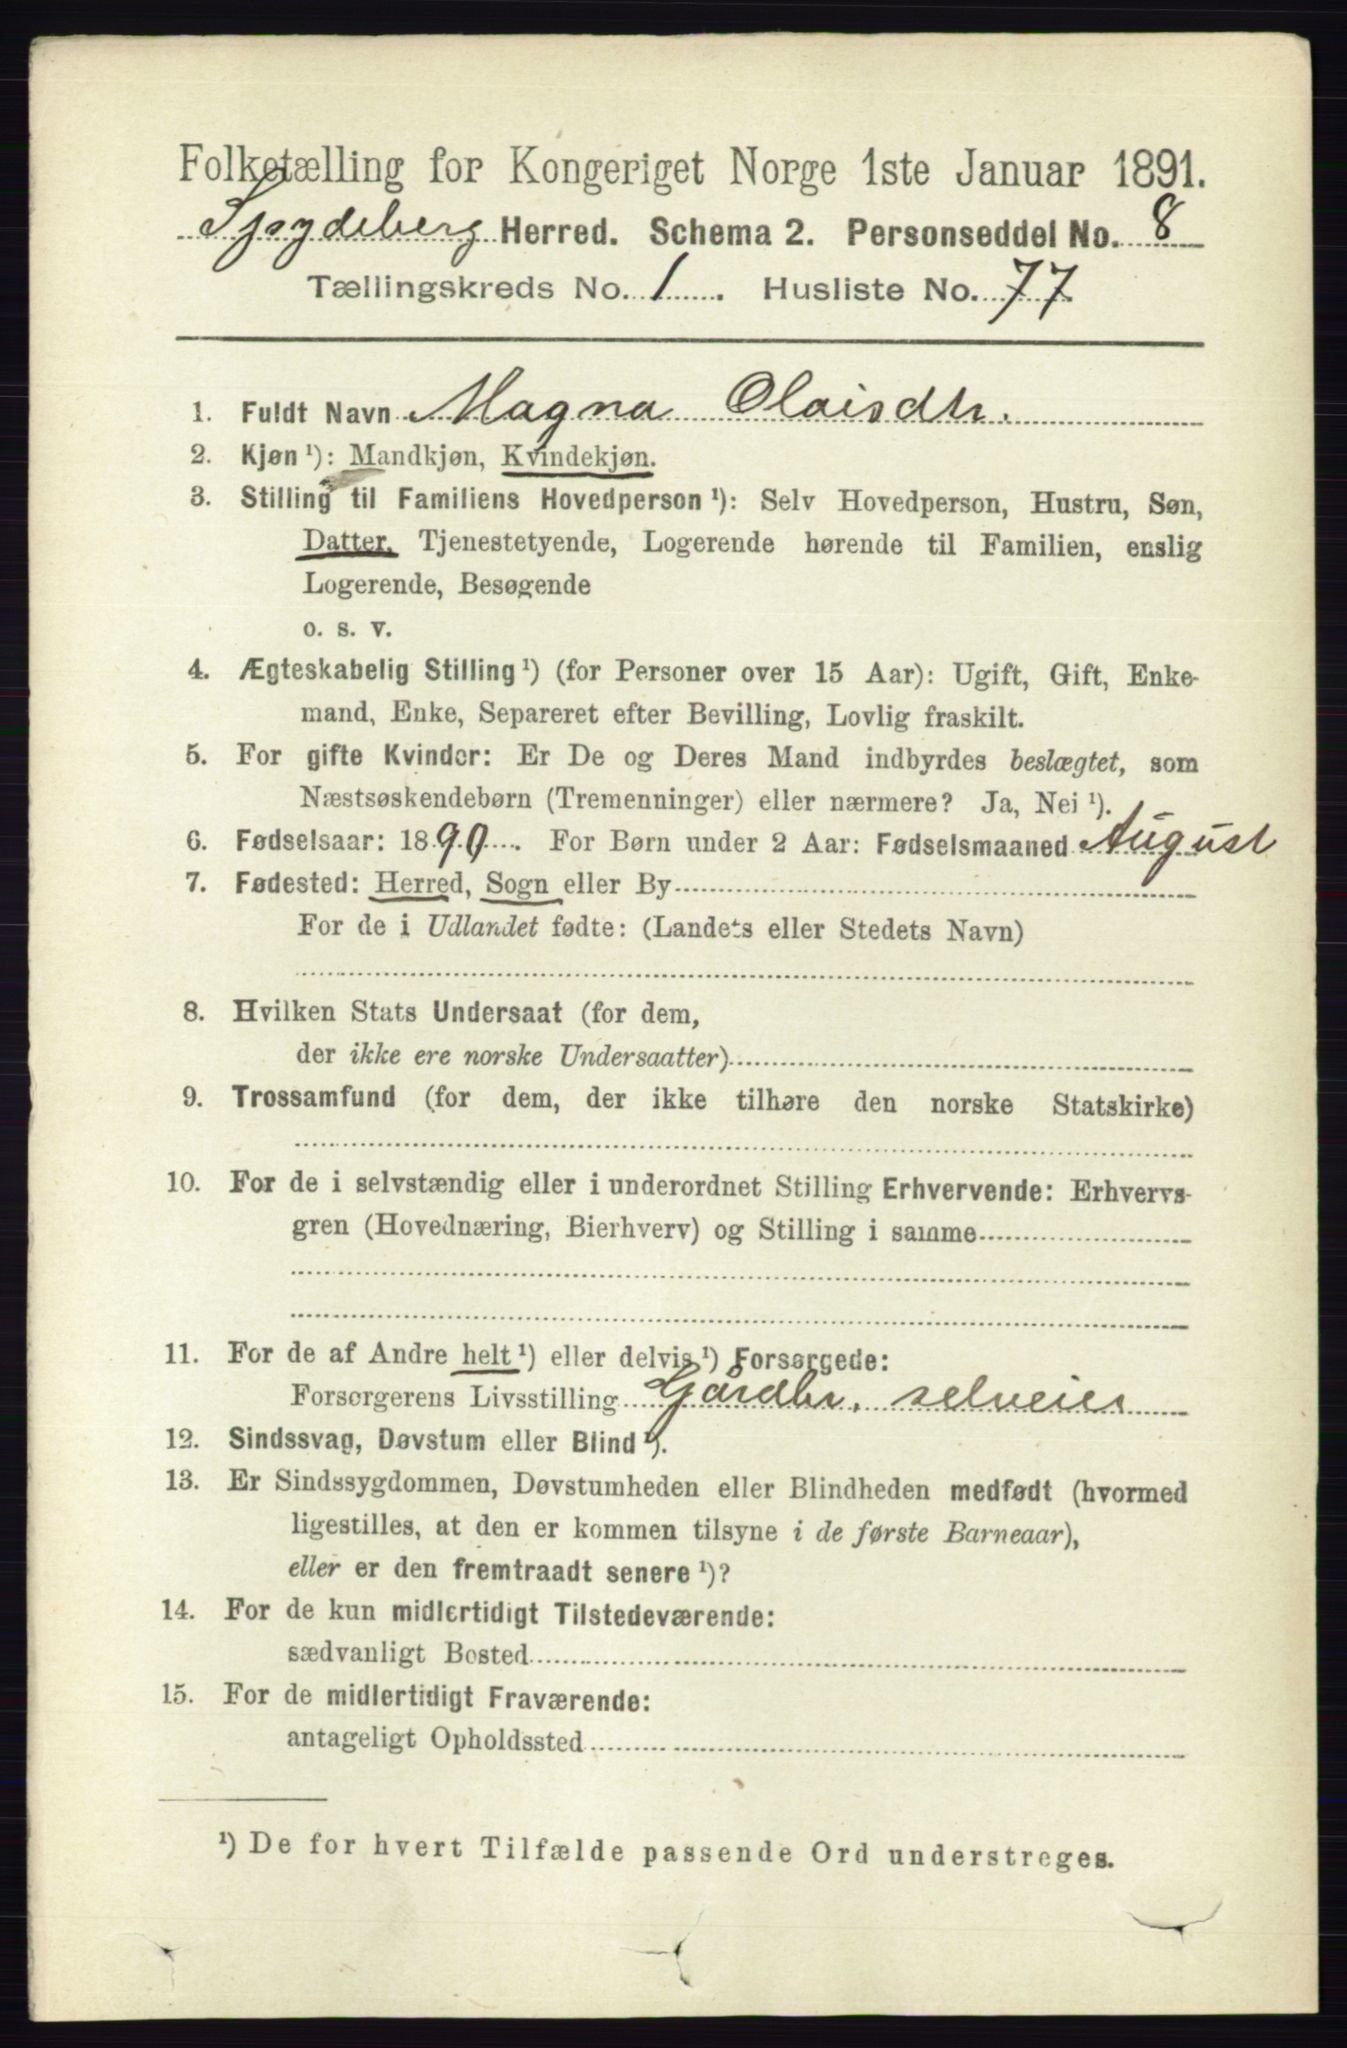 Folketælling for Kongeriget Norge 1ste Januar 1891.
Spydeberg Herred. Schema 2. Personseddel No. 8
Tællingskreds No. 1. Husliste No. 77.
1. Fuldt Navn Magna Olaisdtr.
2. Kjøn ¹): Mandkjøn, Kvindekjøn.
3. Stilling til Familiens Hovedperson ¹): Selv Hovedperson, Hustru, Søn,
Datter, Tjenestetyende, Logerende hørende til Familien, enslig
Logerende, Besøgende
o. s. v.
4. Ægteskabelig Stilling ¹) (for Personer over 15 Aar): Ugift, Gift, Enke-
mand, Enke, Separeret efter Bevilling, Lovlig fraskilt.
5. For gifte Kvinder: Er De og Deres Mand indbyrdes beslægtet, som
Næstsøskendebørn (Tremenninger) eller nærmere? Ja, Nei ¹).
6. Fødselsaar: 1890. For Børn under 2 Aar: Fødselsmaaned August
7. Fødested: Herred, Sogn eller By
For de i Udlandet fødte: (Landets eller Stedets Navn)
8. Hvilken Stats Undersaat (for dem,
der ikke ere norske Undersaatter)
9. Trossamfund (for dem, der ikke tilhøre den norske Statskirke)
10. For de i selvstændig eller i underordnet Stilling Erhvervende: Erhvervs-
gren (Hovednæring, Bierhverv) og Stilling i samme
11. For de af Andre helt ¹) eller delvis ¹) Forsørgede:
Forsørgerens Livsstilling Gårdbr. selveier
12. Sindssvag, Døvstum eller Blind ¹).
13. Er Sindssygdommen, Døvstumheden eller Blindheden medfødt (hvormed
ligestilles, at den er kommen tilsyne i de første Barneaar),
eller er den fremtraadt senere ¹)?
14. For de kun midlertidigt Tilstedeværende:
sædvanligt Bosted
15. For de midlertidigt Fraværende:
antageligt Opholdssted
¹) De for hvert Tilfælde passende Ord understreges.